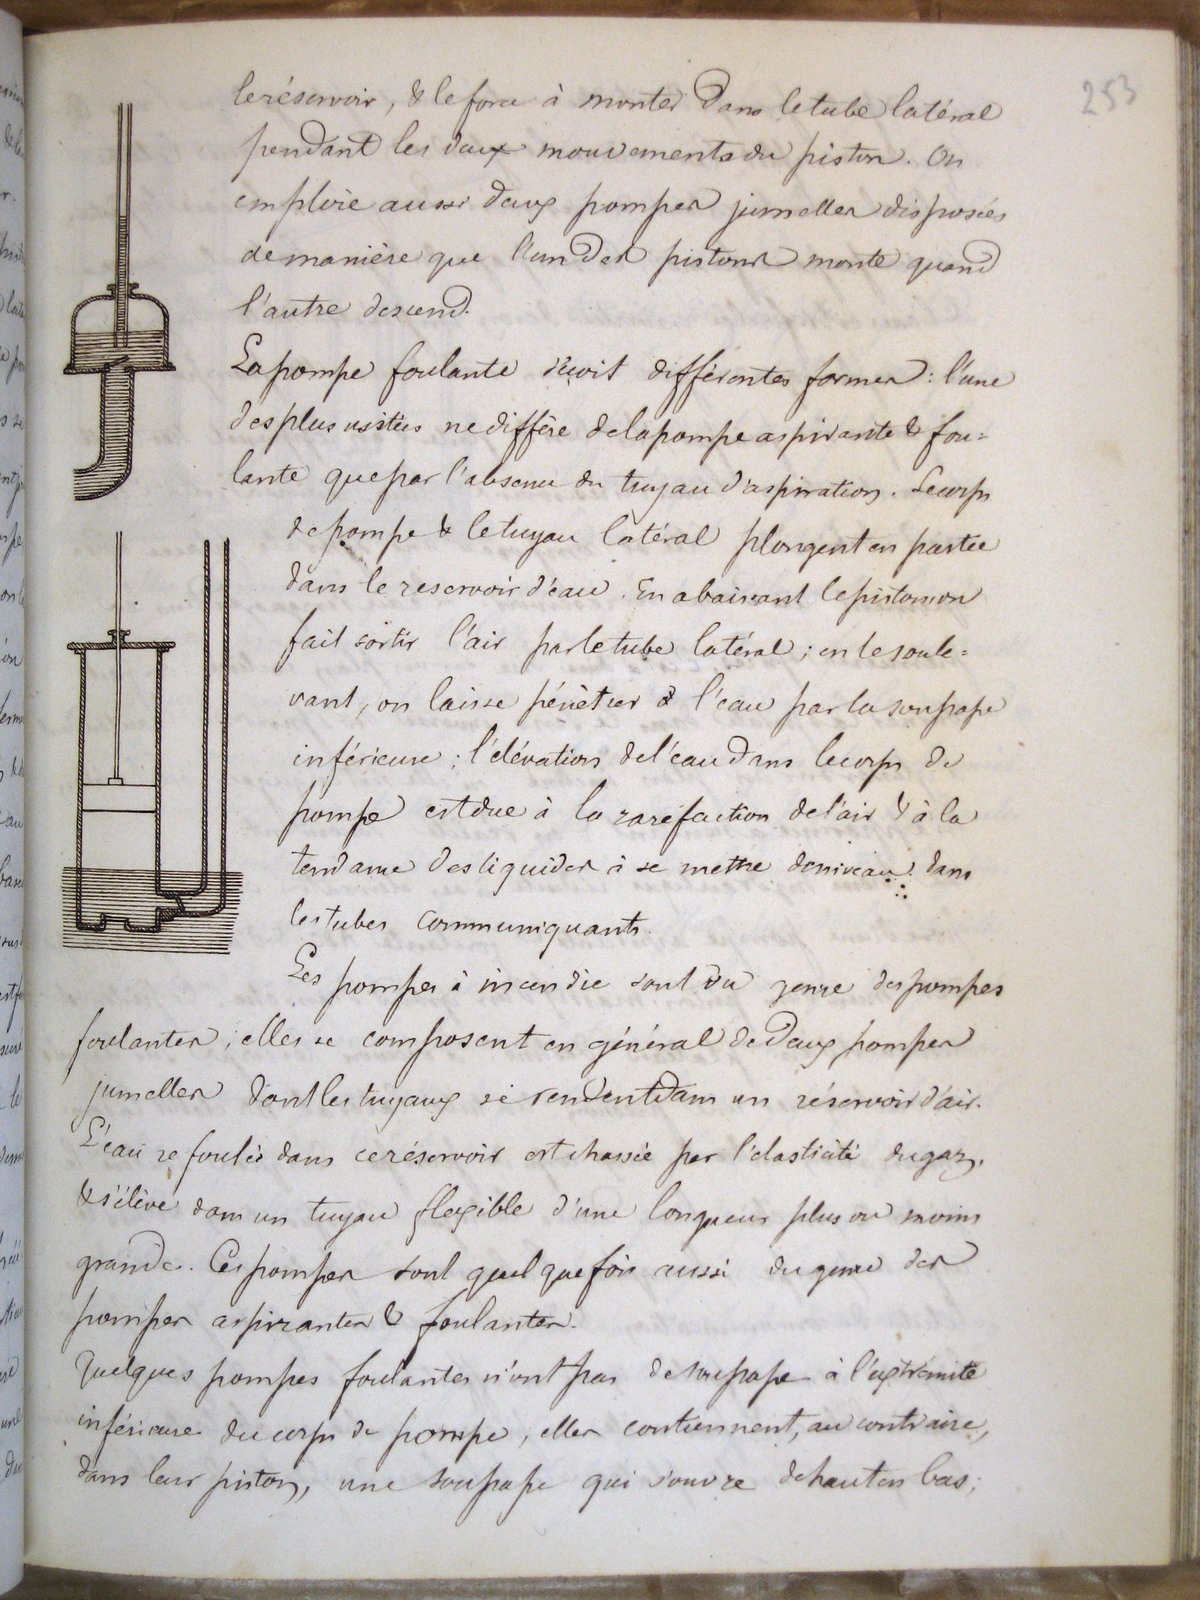 253
le réservoir, & le force à monter dans le tube latéral
pendant les deux mouvements du piston. On
emploie aussi deux pompes jumelles disposées
de manière que l'un des pistons monte quand
l'autre descend.
La pompe foulante reçoit différentes formes : l'une
des plus usitées ne diffère de la pompe aspirante & fou=
lante que par l'absence du tuyau d'aspiration. Le corps
de pompe & le tuyau latéral plongent en partie
dans le reservoir d'eau. En abaissant le piston on
fait sortir l'air par le tube latéral ; en le soule=
vant, on laisse pénétrer l'eau par la soupape
inférieure ; l'élévation de l'eau dans le corps de
pompe est due à la raréfaction de l'air & à la
tendance des liquides à se mettre de niveau dans
les tubes communiquants.
Les pompes à incendie sont du genre des pompes
foulantes ; elles se composent en général de deux pompes
jumelles dont les tuyaux se rendent dans un réservoir d'air.
L'eau refoulée dans ce réservoir est chassée par l'élasticité du gaz,
& s'élève dans un tuyau flexible d'une longueur plus ou moins
grande. Ces pompes sont quelquefois aussi du genre des
pompes aspirantes & foulantes.
Quelques pompes foulantes n'ont pas de soupape à l'extrémité
inférieure du corps de pompe, elles contiennent, au contraire,
dans leur piston, une soupape qui s'ouvre de haut en bas ;